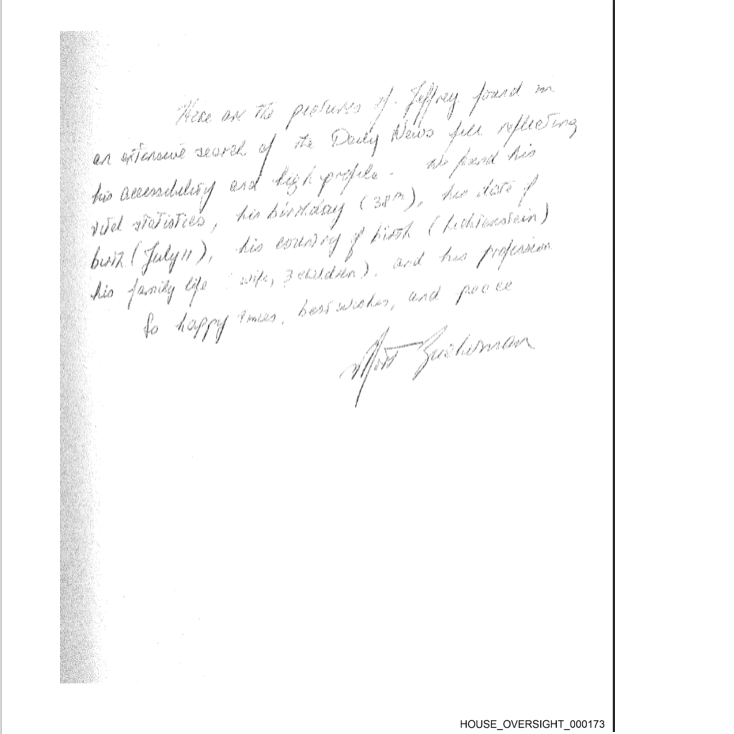 Here are the pictures of Jeffrey found in
an extensive search of the Daily News file reflecting
his accessibility and high profile. We found his
vital statistics, his birthday (38th), his date of
birth (July 11), his country of birth (Lichtenstein)
his family life (wife, 3 children). and his profession
To happy times, best wishes, and peace
Mort Zuckerman
HOUSE_OVERSIGHT_000173